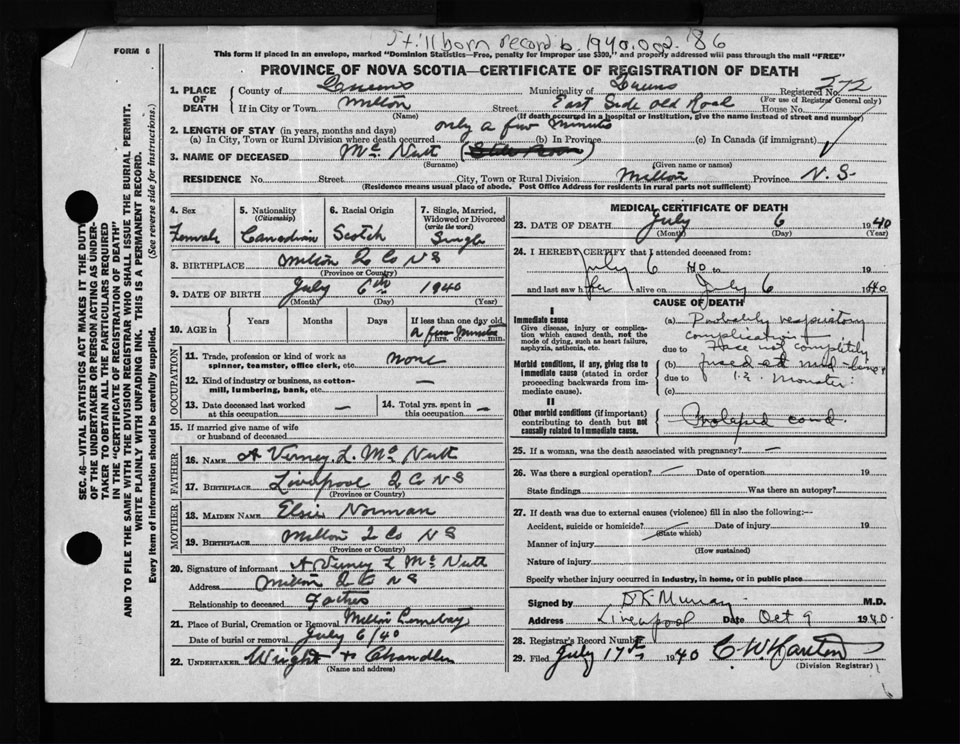 Still born record b. 1940. 86
FORM 6
This form if placed in an envelope, marked "Dominion Statistics—Free, penalty for improper use $300," and properly addressed will pass through the mail "FREE"
PROVINCE OF NOVA SCOTIA—CERTIFICATE OF REGISTRATION OF DEATH
SEC. 46—VITAL STATISTICS ACT MAKES IT THE DUTY
OF THE UNDERTAKER OR PERSON ACTING AS UNDER-
TAKER TO OBTAIN ALL THE PARTICULARS REQUIRED
IN THE "CERTIFICATE OF REGISTRATION OF DEATH"
AND TO FILE THE SAME WITH THE DIVISION REGISTRAR WHO SHALL ISSUE THE BURIAL PERMIT.
WRITE PLAINLY WITH UNFADING INK. THIS IS A PERMANENT RECORD.
Every item of information should be carefully supplied. (See reverse side for instructions.)
1. PLACE OF DEATH
County of Queens Municipality of Queens Registered No. 572
(For use of Registrar General only)
If in City or Town Milton Street East Side Old Road House No.
(Name) (If death occurred in a hospital or institution, give the name instead of street and number)
2. LENGTH OF STAY (in years, months and days)
(a) In City, Town or Rural Division where death occurred only a few minutes (b) In Province (c) In Canada (if immigrant)
3. NAME OF DECEASED Mc Nutt
(Surname) (Given name or names)
RESIDENCE No. Street City, Town or Rural Division Milton Province N. S.
(Residence means usual place of abode. Post Office Address for residents in rural parts not sufficient)
4. Sex Female
5. Nationality (Citizenship) Canadian
6. Racial Origin Scotch
7. Single, Married, Widowed or Divorced (write the word) Single
8. BIRTHPLACE Milton Q Co NS
(Province or Country)
9. DATE OF BIRTH July 6th 1940
(Month) (Day) (Year)
10. AGE in Years Months Days If less than one day old A few Minutes hrs. or min.
OCCUPATION
11. Trade, profession or kind of work as spinner, teamster, office clerk, etc. none
12. Kind of industry or business, as cotton-mill, lumbering, bank, etc. —
13. Date deceased last worked at this occupation —
14. Total yrs. spent in this occupation —
15. If married give name of wife or husband of deceased
FATHER
16. NAME A Verney L. Mc Nutt
17. BIRTHPLACE Liverpool Q C NS
(Province or Country)
MOTHER
18. MAIDEN NAME Elsie Norman
19. BIRTHPLACE Milton Q Co NS
(Province or Country)
20. Signature of informant A Verney L Mc Nutt
Address Milton Q C NS
Relationship to deceased Father
21. Place of Burial, Cremation or Removal Milton Cemetery
Date of burial or removal July 6/40
22. UNDERTAKER Wright & Chandler
(Name and address)
MEDICAL CERTIFICATE OF DEATH
23. DATE OF DEATH July 6 1940
(Month) (Day) (Year)
24. I HEREBY CERTIFY that I attended deceased from:
July 6 40 to 19
and last saw her alive on July 6 1940
CAUSE OF DEATH
I
Immediate cause
Give disease, injury or complication which caused death, not the mode of dying, such as heart failure, asphyxia, asthenia, etc.
(a) Probably respiratory complication
due to
Morbid conditions, if any, giving rise to immediate cause (stated in order proceeding backwards from immediate cause).
(b) Face not completely fused at mid-line
due to i.e. Monster.
(c)
II
Other morbid conditions (if important) contributing to death but not causally related to immediate cause.
Prolapsed cord.
25. If a woman, was the death associated with pregnancy? —
26. Was there a surgical operation? — Date of operation 19
State findings Was there an autopsy?
27. If death was due to external causes (violence) fill in also the following:—
Accident, suicide or homicide? Date of injury 19
(State which)
Manner of injury
(How sustained)
Nature of injury
Specify whether injury occurred in industry, in home, or in public place
Signed by Murray M.D.
Address Liverpool Date Oct 9 1940
28. Registrar's Record Number
29. Filed July 17th 1940 C. W.
(Division Registrar)